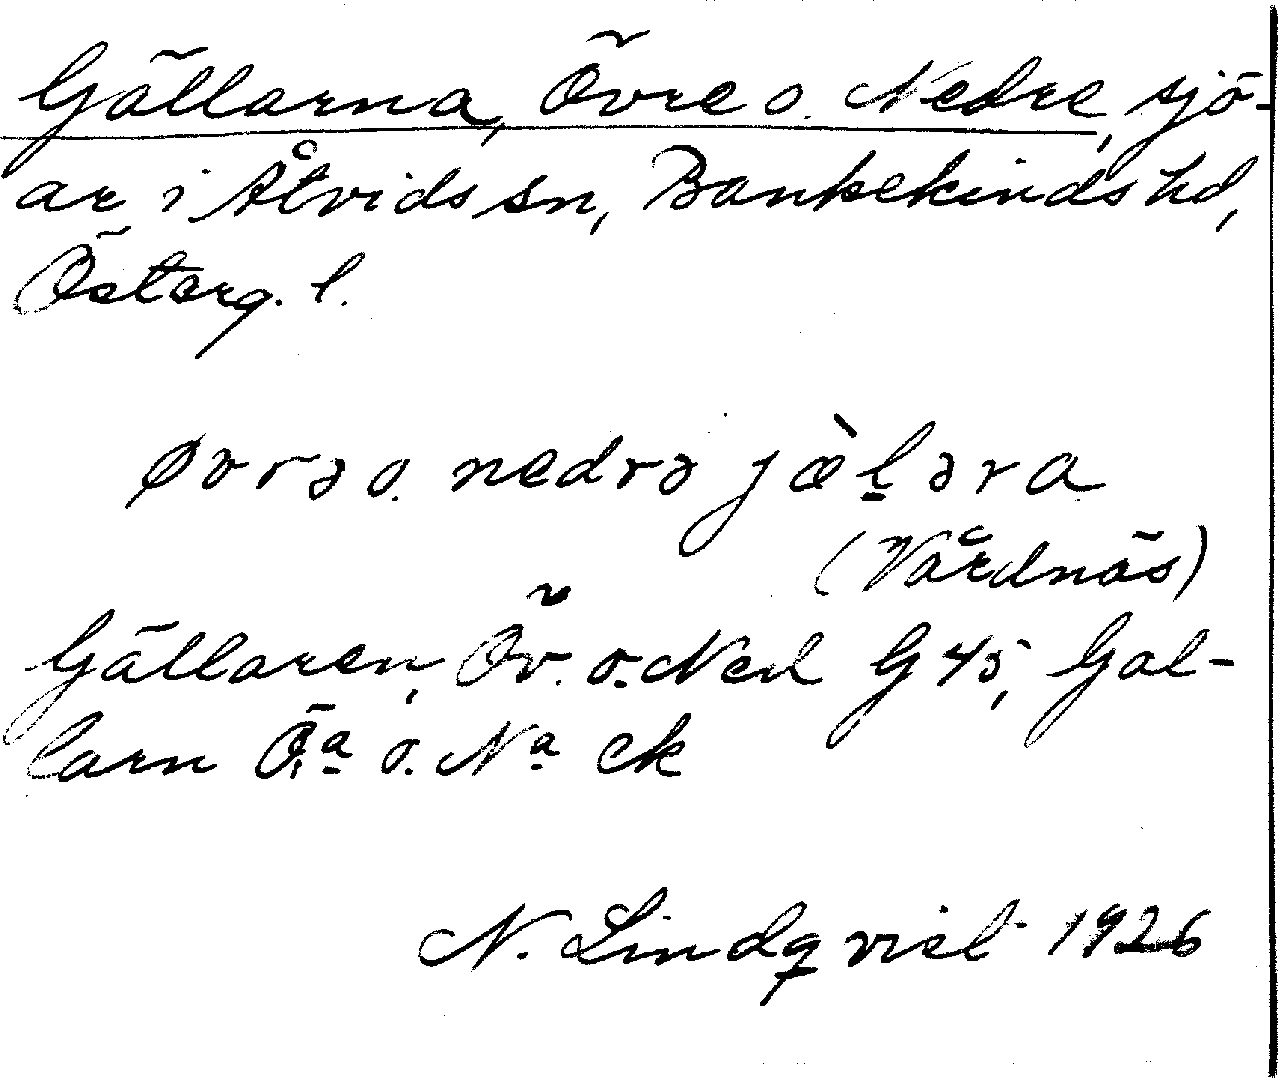 Gällarna, Övre o. Nedre, sjö-
ar i Åtvids sn, Bankekinds hd,
Österg. l.
øvrə o. nedrə jæ̀l̠əra
(Vårdnäs)
Gällaren, Öv. o. Ned G 45, Gäl-
larn Ö:a o. N:a ek
N. Lindqvist 1926